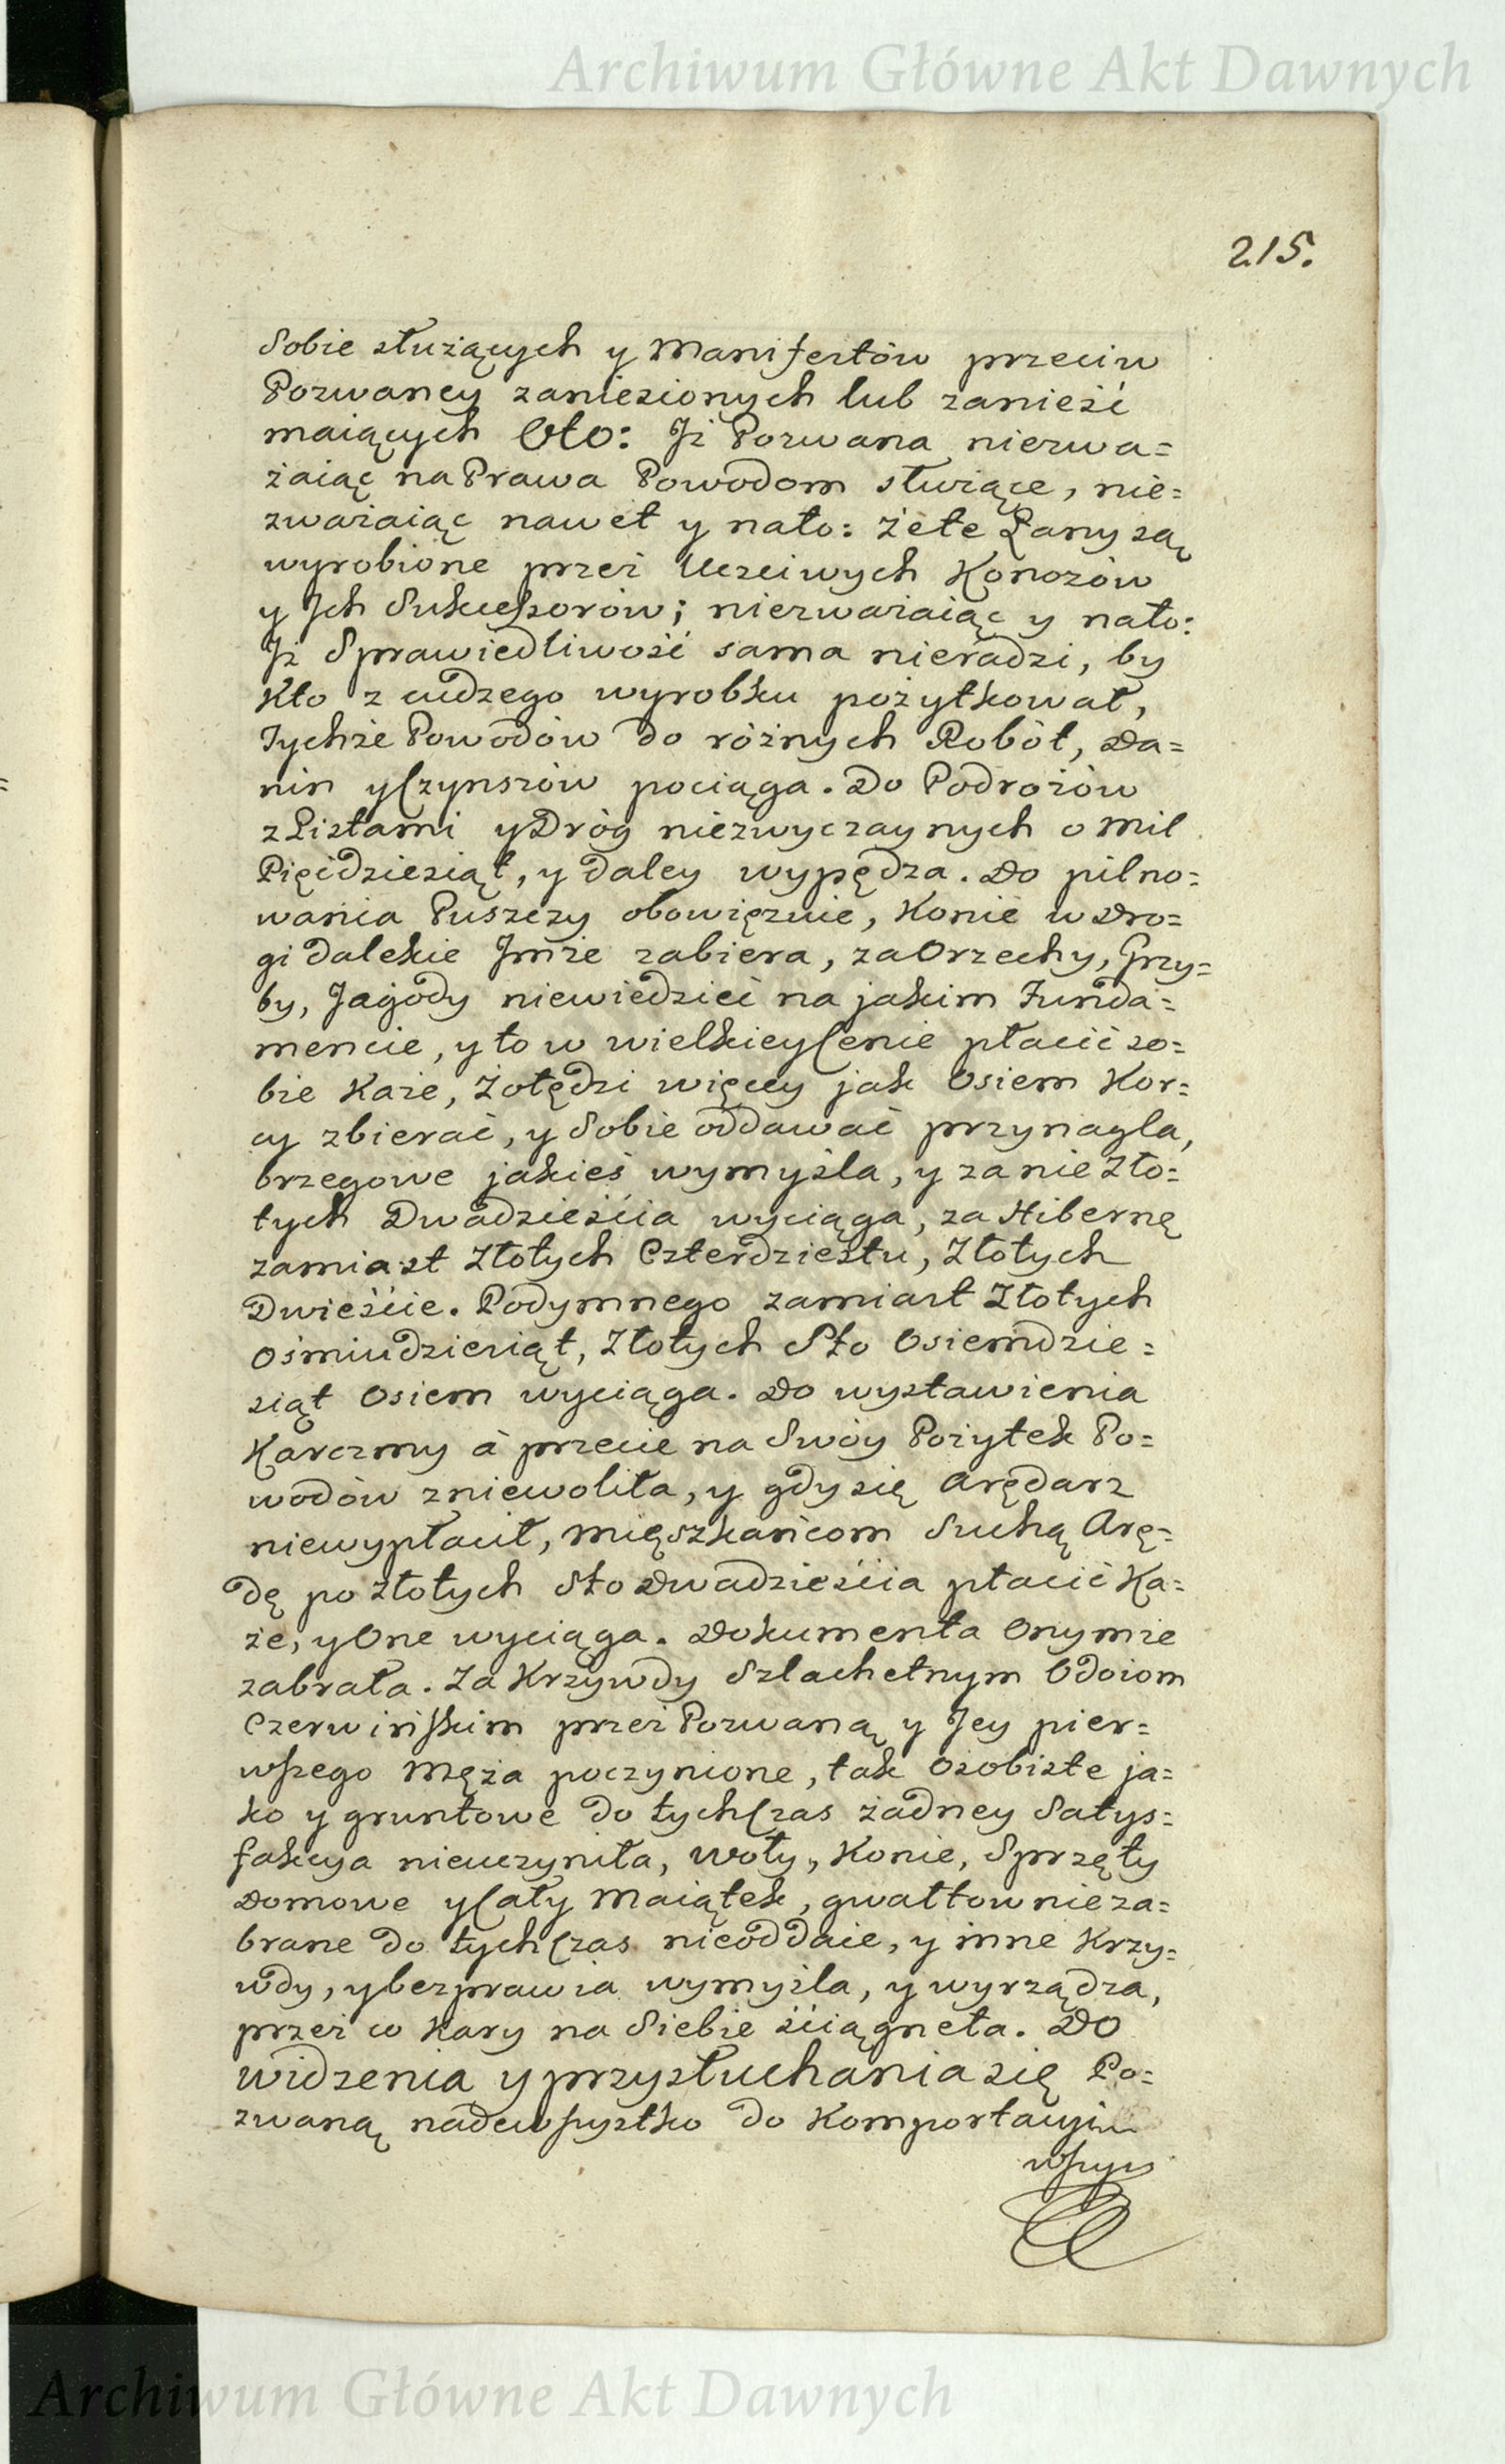 Archiwum Główne Akt Dawnych
215.
Sobie służących y Manifestów przeciw
Pozwaney zaniesionych lub zanieść
maiących Oto: Jż Pozwana niezwa=
żaiąc na Prawa Powodom służące, nie=
zważaiąc nawet y nato: że te Łany są
wyrobione przez Uczciwych Konozów
y Jch Sukcessorów; niezważaiąc y nato:
Jż Sprawiedliwość sama nieradzi, by
Kto z cudzego wyrobku pożytkował,
Tychże Powodów do różnych Robót, Da=
nin y Czynszów pociąga. Do Podrożów
z Listami y Dróg niezwyczaynych o Mil
Pięćdziesiąt, y daley wypędza. Do pilno=
wania Puszczy obowięzuie, Konie w Dro=
gi dalekie Jmże zabiera, za Orzechy, Grzy=
by, Jagody niewiedzieć na jakim Funda=
mencie, y to w wielkiey Cenie płacić so=
bie Każe, Żołędzi więcey jak Osiem Kor=
cy zbierać, y Sobie oddawać przynagla,
brzegowe jakieś wymyśla, y za nie Zło=
tych Dwadzieścia wyciąga, za Hibernę
zamiast Złotych Czterdziestu, Złotych
Dwieście. Podymnego zamiast Złotych
Ośmiudziesiąt, Złotych Sto Osiemdzie=
siąt Osiem wyciąga. Do wystawienia
Karczmy á przecie na Swóy Pożytek Po=
wodów zniewoliła, y gdy się Arędarz
niewypłacił, Mięszkańcom Suchą Arę=
dę po Złotych Sto Dwadzieścia płacić Ka=
że, y One wyciąga. Dokumenta Onymże
zabrała. Za Krzywdy Szlachetnym Odoiom
Czerwińskim przez Pozwaną y Jey pier=
wszego Męża poczynione, tak Osobiste ja=
ko y gruntowe do tych Czas żadney Satys=
fakcya nieuczyniła, Woły, Konie, Sprzęty
Domowe y Cały Maiątek, gwałtownie za=
brane do tych Czas nieoddaie, y inne Krzy=
wdy, y bezprawia wymyśla, y wyrządza,
przez co Kary na Siebie ściągneła. Do
widzenia y przysłuchania się Po=
zwaną nadewszystko do Komportacyi
wszys
Archiwum Główne Akt Dawnych